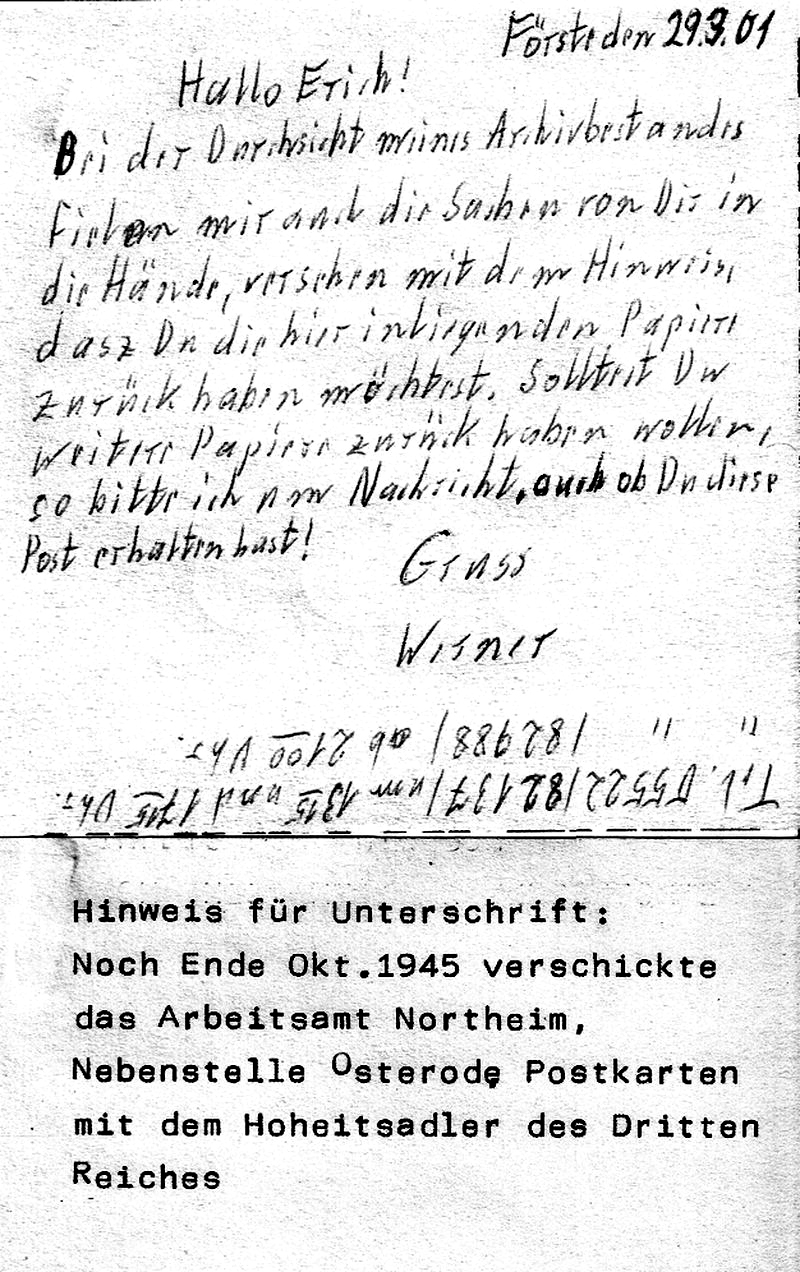 Förste den 29.9.01
Hallo Erich!
Bei der Durchsicht meines Archivbestandes
fielen mir auch die Sachen von Dir in
die Hände, versehen mit dem Hinweis,
dasz Du die hier inliegenden Papiere
zurück haben möchtest. Solltest Du
weitere Papiere zurück haben wollen,
so bitte ich um Nachricht, auch ob Du diese
Post erhalten hast!
Gruss
Werner
Tel. 05522/82137/ um 1315 und 1715 Uhr.
" " /82988/ ab 2100 Uhr.
Hinweis für Unterschrift:
Noch Ende Okt.1945 verschickte
das Arbeitsamt Northeim,
Nebenstelle Osterode Postkarten
mit dem Hoheitsadler des Dritten
Reiches